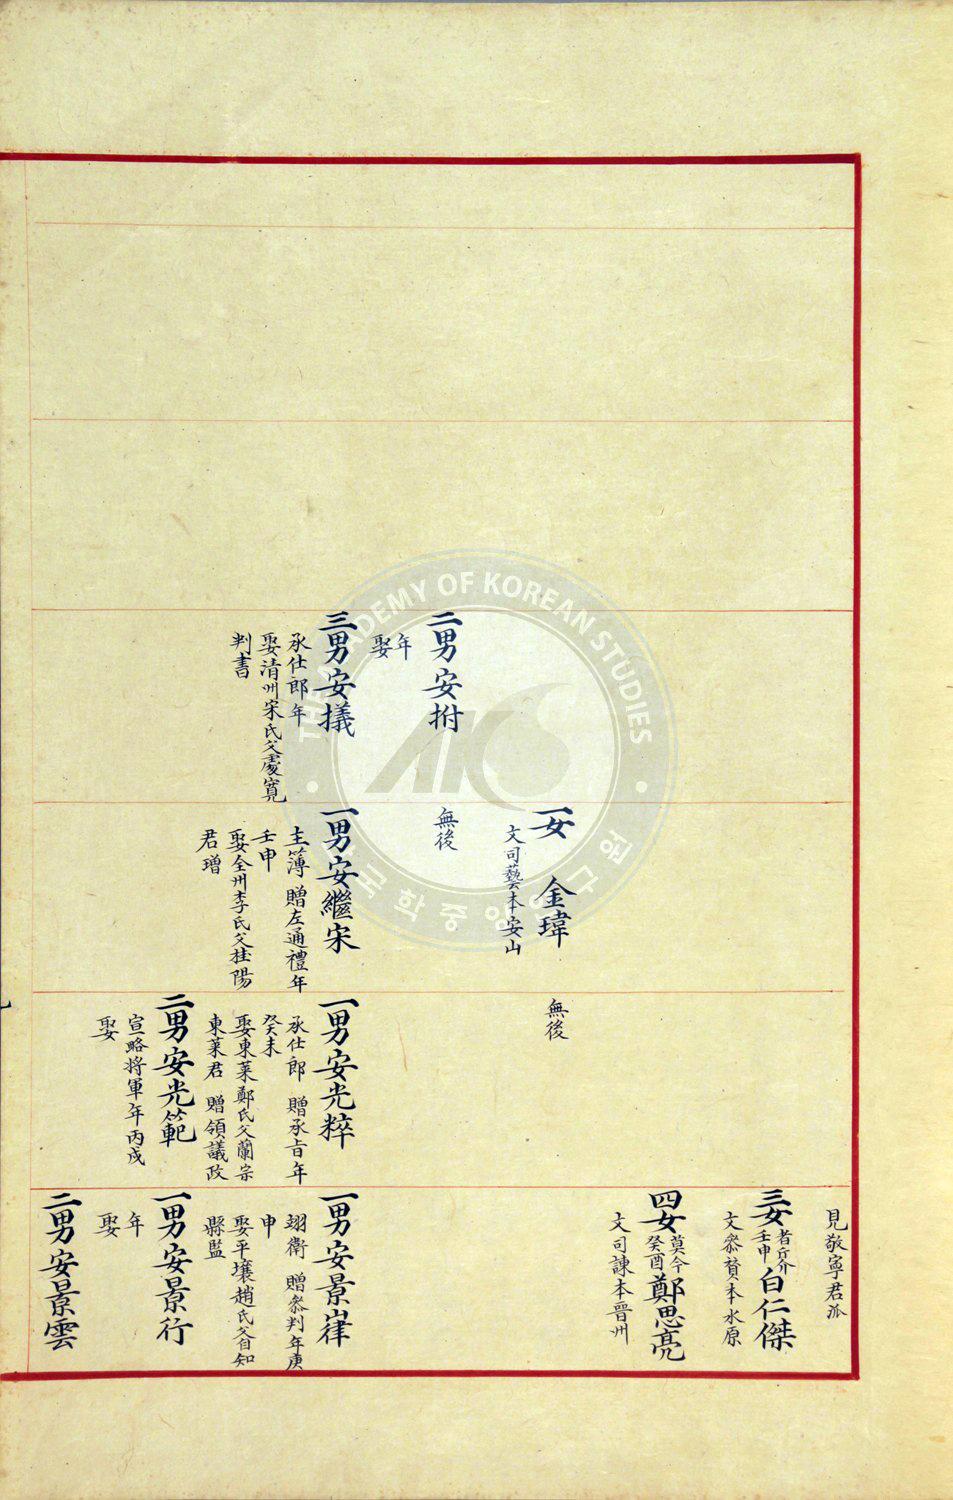 二男安拊
年
娶
三男安㩘
承仕郎年
娶清州宋氏父處寬
判書
一女 金瑋
文司藝本安山
無後
一男安繼宋
主簿 贈左通禮年
壬申
娶全州李氏父桂陽
君璔
無後
一男安光粹
承仕郎 贈承旨年
癸未
娶東萊鄭氏父蘭宗
東萊君 贈領議政
二男安光範
宣略將軍年丙戌
娶
見敬寧君派
三女者斤介壬申白仁傑
文叅贊本水原
四女莫今癸酉鄭思亮
文司諫本晉州
一男安景嵂
翊衛 贈叅判年庚
申
娶平壤趙氏父自知
縣監
一男安景行
年
娶
二男安景雲
THE ACADEMY OF KOREAN STUDIES
AKS
한국학중앙연구원